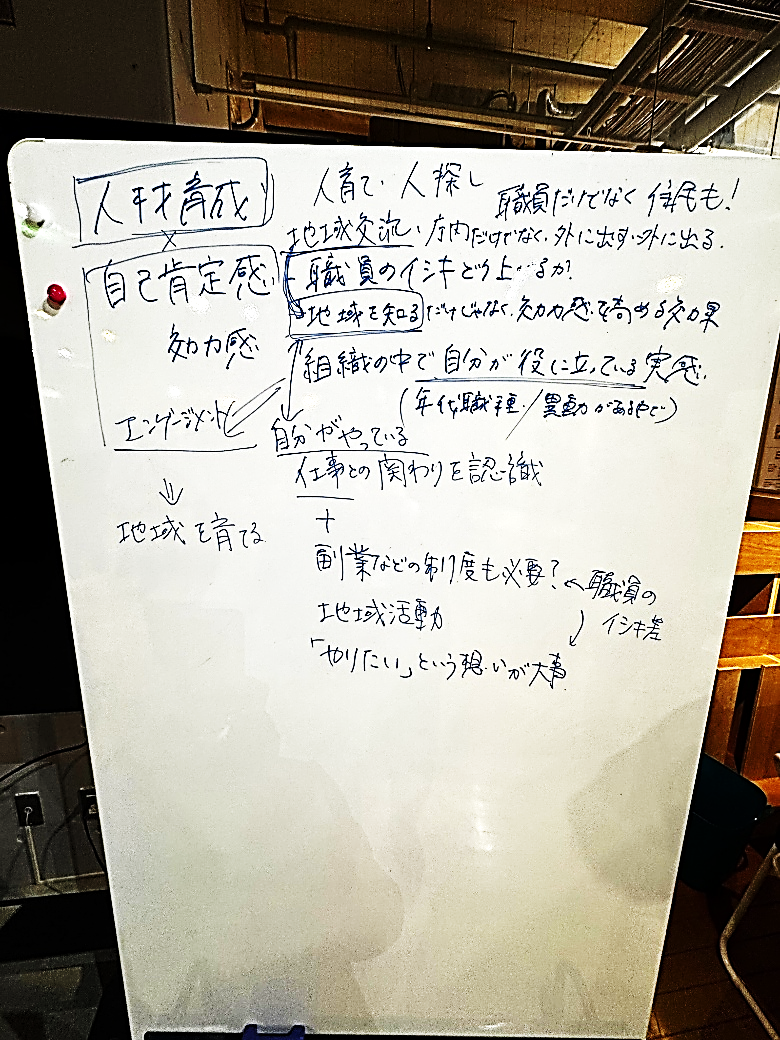 人材育成
×
自己肯定感
効力感
エンゲージメント
地域を育てる
人育て・人探し 職員だけでなく住民も!
地域交流 庁内だけでなく、外に出す・外に出る。
職員のイシキどう上がるか?
地域を知るだけじゃなく、効力感を高める効果
組織の中で自分が役に立っている実感。
(年代職種/異動がある中で)
自分がやっている
仕事との関わりを認識
+
副業などの制度も必要?←職員の
イシキ差
地域活動
「やりたい」という想いが大事